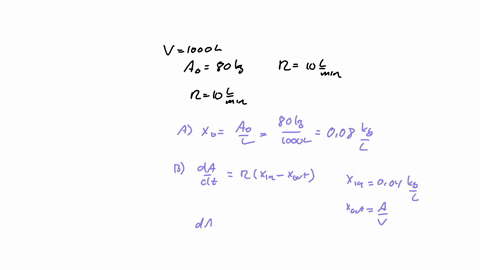 V = 1000L
A₀ = 80 kg
R = 10 L/min
R = 10 L/min
A) x₀ = A₀/L = 80 kg/1000L = 0,08 kg/L
B) dA/dt = R (x_in - x_out)
x_in = 0,04 kg/L
x_out = A/V
dA